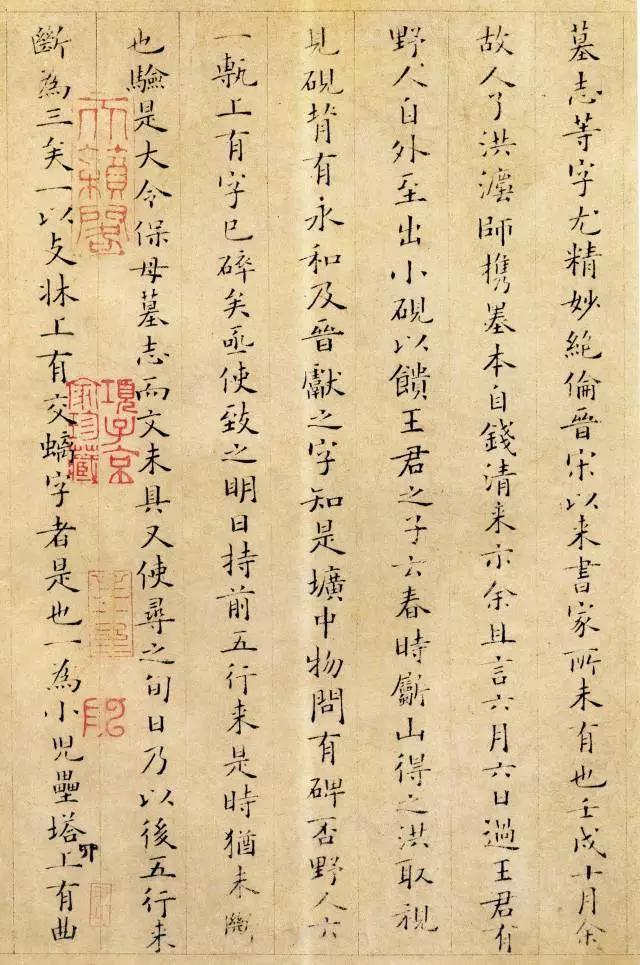 墓志等字尤精妙絕倫晉宋以来書家所未有也壬戌十月余
故人了洪灋師攜墨本自錢清来示余且言六月六日過王君有
野人自外至出小硯以饋王君之子云春時斸山得之洪取視
見硯背有永和及晉獻之字知是壙中物問有碑否野人云
一甎上有字已碎矣亟使致之明日持前五行来是時猶未斷
也驗是大令保母墓志而文未具又使尋之旬日乃以後五行来
斷為三矣一以攴牀上有交螭字者是也一為小児壘塔上有曲
卬
天籟閣
項子京
家珍藏